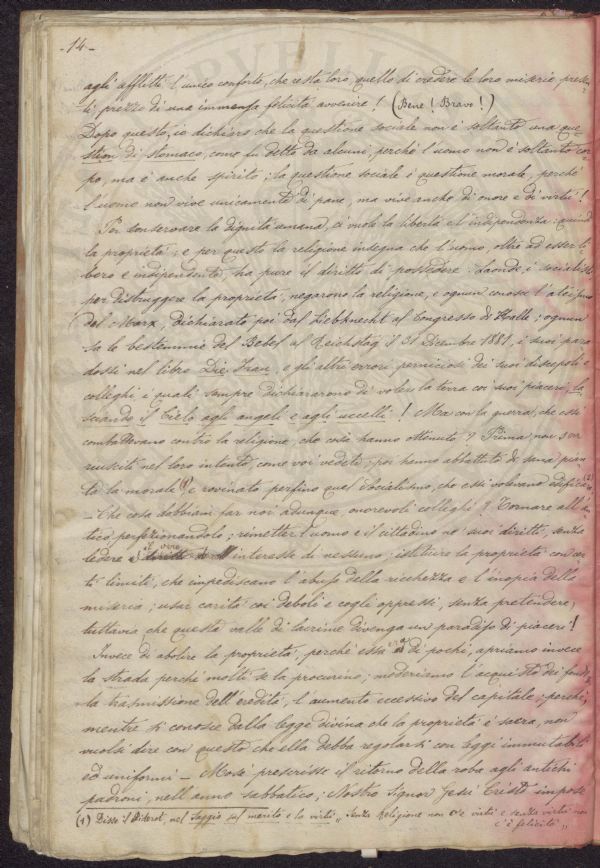 -14-
agli afflitti l'unico conforto, che resta loro, quello di credere le loro miserie presen-
ti prezzo di una immensa felicità avvenire! (Bene! Bravo!)
Dopo questo, io dichiaro che la questione sociale non è soltanto una que-
stion di stomaco, come fu detto da alcuni, perché l'uomo non è soltanto cor-
po, ma è anche spirito; la questione sociale è questione morale, perché
l'uomo non vive unicamente di pane, ma vive anche di onore e di virtù!
Per conservare la dignità umana, ci vuole la libertà e l'indipendenza: quindi
la proprietà; e per questo la religione insegna che l'uomo, oltre ad esser li-
bero e indipendente, ha pure il diritto di possedere. Laonde i socialisti
per distruggere la proprietà, negarono la religione, e ognun conosce l'ateismo
del Marx, dichiarato poi dal Liebknecht al Congresso di Halle; ognun
sa le bestemmie del Bebel al Reichstag il 31 Dicembre 1881, i suoi para-
dossi nel libro Die Frau, e gli altri errori perniciosi dei suoi discepoli e
colleghi, i quali sempre dichiararono di volere la terra coi suoi piaceri, la-
sciando il Cielo agli angeli e agli uccelli! Ma con la guerra, che essi
combattevano contro la religione, che cosa hanno ottenuto? Prima non son
riusciti nel loro intento, come voi vedete; poi hanno abbattuto di sana pian-
ta la morale (1) e rovinato perfino quel Socialismo, che essi volevano edificare
- Che cosa dobbiam far noi adunque, onorevoli colleghi? Tornare all'an-
tico perfezionandolo; rimetter l'uomo e il cittadino ne' suoi diritti, senza
ledere il vero interesse di nessuno; istituire la proprietà con cer-
ti limiti, che impediscano l'abuso della ricchezza e l'inopia della
miseria; usar carità coi deboli e cogli oppressi, senza pretendere,
tuttavia che questa valle di lacrime divenga un paradiso di piaceri!
Invece di abolire la proprietà, perché essa è di pochi, apriamo invece
la strada perché molti se la procurino; moderiamo l'acquisto dei fondi,
la trasmissione dell'eredità, l'aumento eccessivo del capitale; perché,
mentre si conosce dalla legge divina che la proprietà è sacra, non
vuolsi dire con questo che ella debba regolarsi con leggi immutabili
ed uniformi - Mosè prescrisse il ritorno della roba agli antichi
padroni, nell'anno sabbatico; Nostro Signor Jesù Cristo impose
(1) Disse il Diderot, nel Saggio sul merito e la virtù „ Senza Religione non v'è virtù e senza virtù non
c'è felicità „